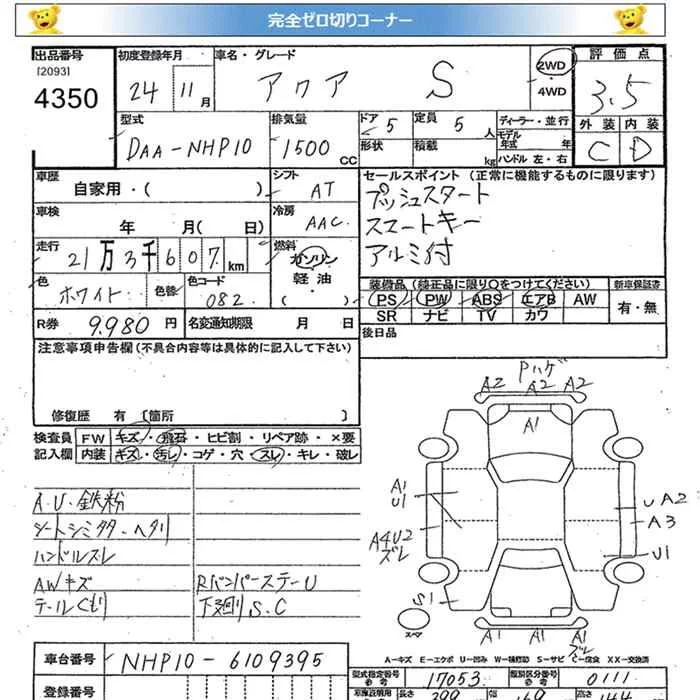 完全ゼロ切りコーナー
出品番号
[2093]
4350
初度登録年月
24 11月
車名・グレード
アクア S
2WD
・
4WD
評価点
3.5
外装 内装
C D
型式
DAA-NHP10
排気量
1500 CC
ドア 5
形状
定員 5 人
積載 kg
ディーラー・並行
モデル年式 年
ハンドル 左・右
車歴
自家用・( )
シフト
AT
セールスポイント(正常に機能するものに限ります)
プッシュスタート
スマートキー
アルミ付
車検
年 月( 日)
冷房
AAC
走行
21万3千607km
燃料
ガソリン
軽油
( )
色
ホワイト
色替
色コード
082
装備品(純正品に限り○をつけてください)
PS PW ABS エアB AW
SR ナビ TV カワ
新車保証書
有・無
R券 9,980円
名変通知期限 月 日
後日品
注意事項申告欄(不具合内容等は具体的に記入して下さい)
修復歴 有 [箇所 ]
検査員
記入欄
FW キズ・飛石・ヒビ割・リペア跡・×要
内装 キズ・汚レ・コゲ・穴・スレ・キレ・破レ
A.U.鉄粉
シートシミタタ.ヘタリ
ハンドルスレ
AWキズ
テールくもり
Rバンパーステー U
下廻り S.C
Pハゲ
A2 A2 A2
A1
A1
U1
A4U2
ズレ
S1
U A2
A3
U1
スペア
A1 A1
ズレ
A-キズ E-エクボ U-凹み W-補修跡 S-サビ C-腐食 XX-交換済
車台番号
NHP10-6109395
登録番号
型式指定番号
参考
17053
類別区分番号
参考
0111
長さ
399
169